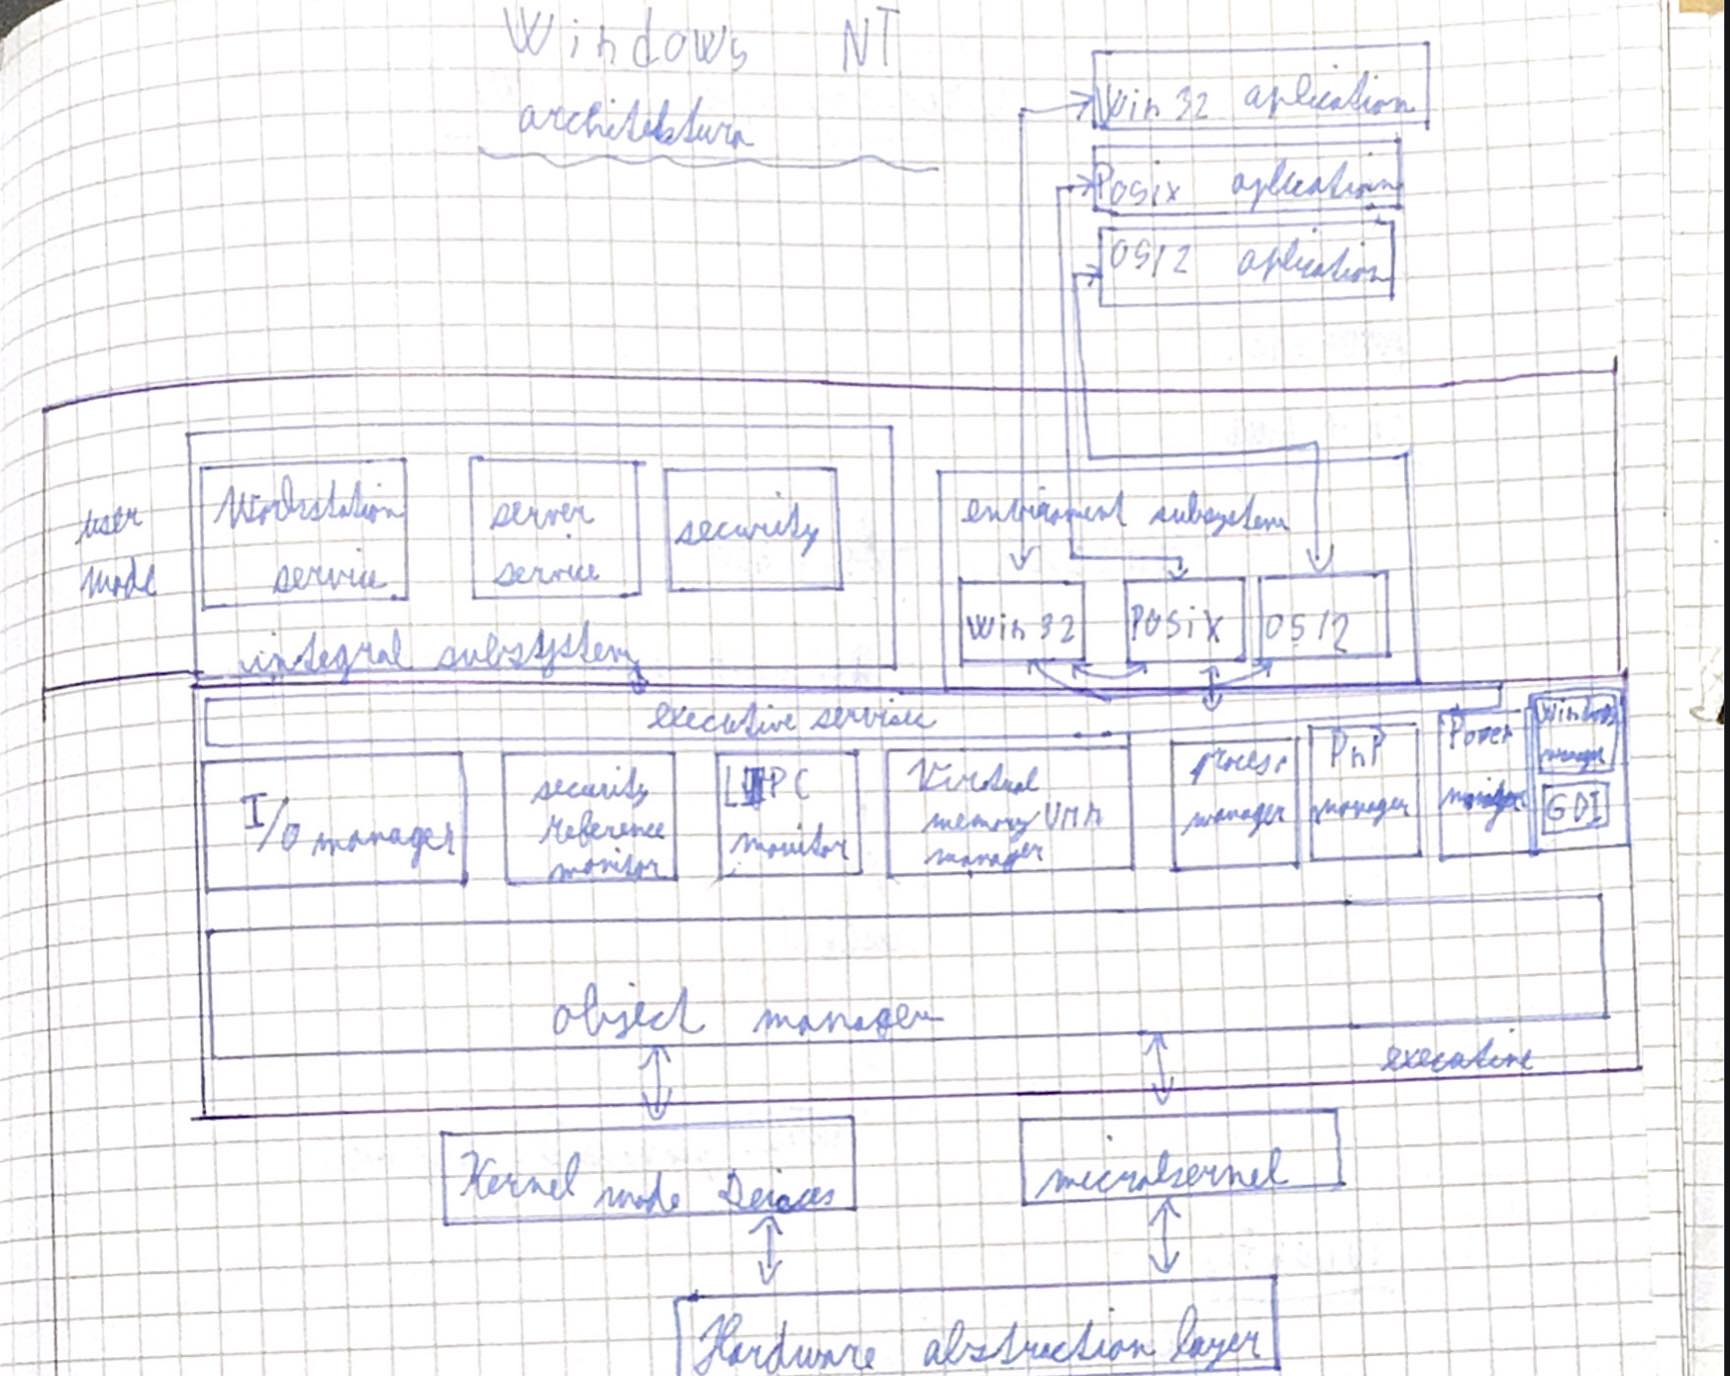 Windows NT
architektura
Win 32 aplication
Posix aplication
OS/2 aplication
user
mode
Workstation
service
server
service
security
integral subsystem
enviroment subsystem
Win 32
POSiX
OS/2
executive service
I/O manager
security
reference
monitor
PC
monitor
Virtual
memory VMM
manager
process
manager
PnP
manager
Power
manager
Window
manager
GDI
object manager
executive
Kernel mode
microkernel
Hardware abstraction layer